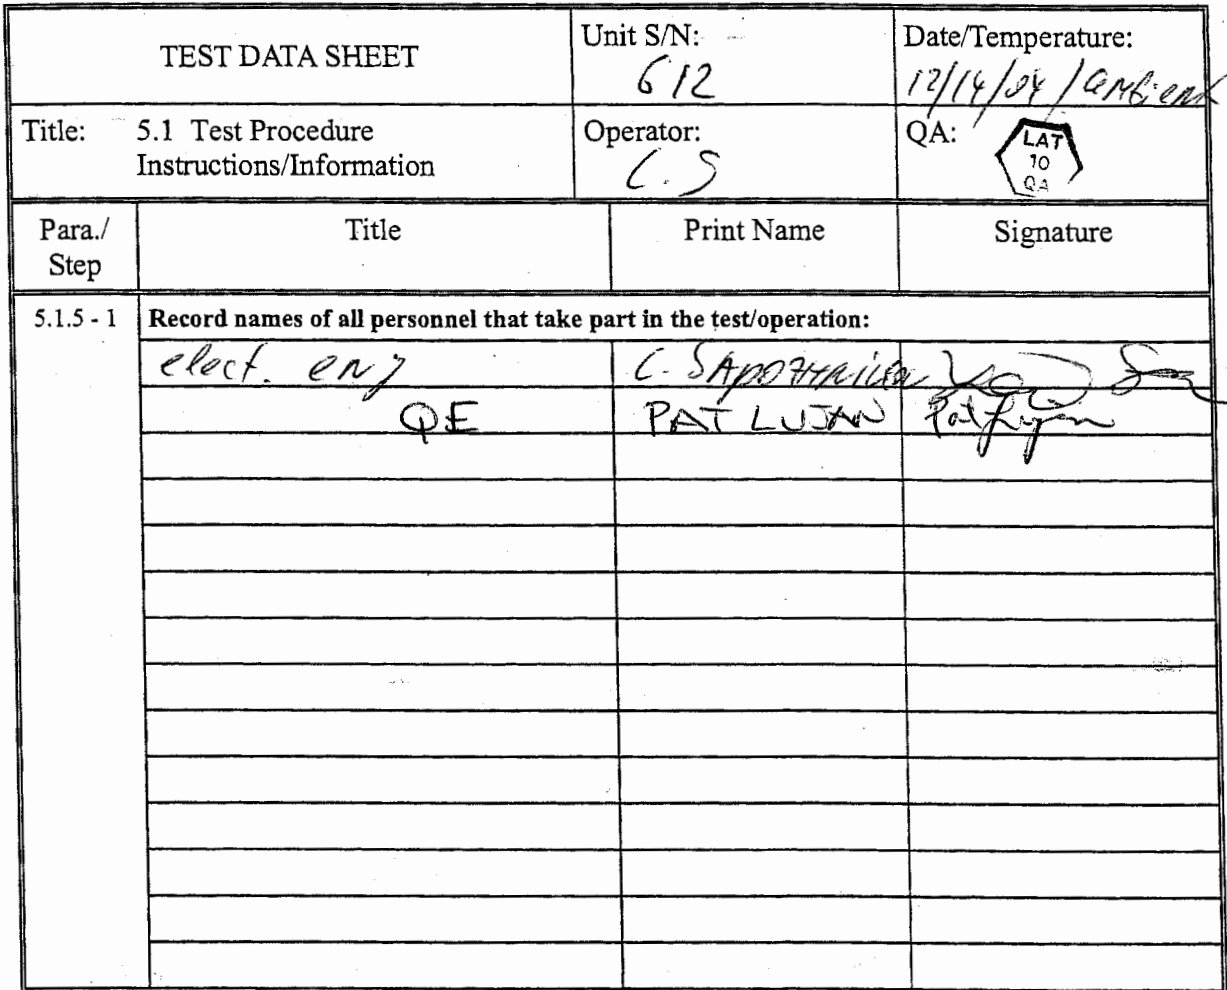 TEST DATA SHEET
Unit S/N:
612
Date/Temperature:
12/14/04 / ambient
Title: 5.1 Test Procedure
Instructions/Information
Operator:
C.S
QA:
LAT
10
QA
Para./
Step
Title
Print Name
Signature
5.1.5 - 1
Record names of all personnel that take part in the test/operation:
elect. eng
C.
QE
PAT LUJAN
Pat Lujan